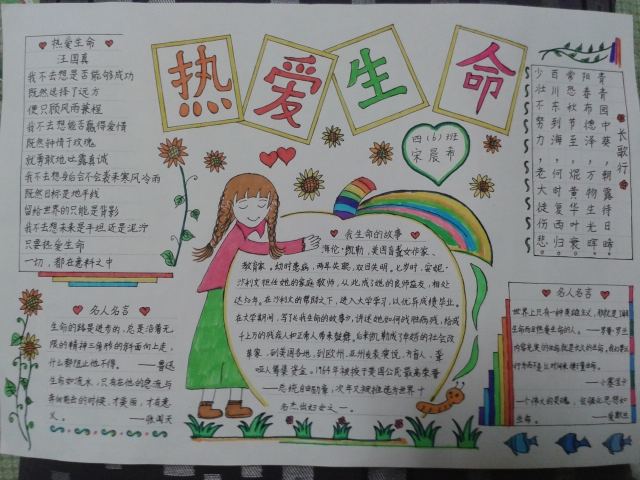 热爱生命
四(6)班
宋晨希
热爱生命
汪国真
我不去想是否能够成功
既然选择了远方
便只顾风雨兼程
我不去想能否赢得爱情
既然钟情于玫瑰
就勇敢地吐露真诚
我不去想身后会不会袭来寒风冷雨
既然目标是地平线
留给世界的只能是背影
我不去想未来是平坦还是泥泞
只要热爱生命
一切,都在意料之中
长歌行
青青园中葵,朝露待日晞
阳春布德泽,万物生光晖
常恐秋节至,焜黄华叶衰
百川东到海,何时复西归
少壮不努力,老大徒伤悲
我生命的故事
海伦·凯勒,美国盲聋女作家、
教育家。幼时患病,两耳失聪,双目失明。七岁时,安妮·
沙利文担任她的家庭教师,从此成了她的良师益友,相处
达50年。在沙利文的帮助下,进入大学学习,以优异成绩毕业。
在大学期间,写了《我生命的故事》,讲述她如何战胜病残,给成
千上万的残疾人和正常人带来鼓舞。后来凯勒成了卓越的社会改
革家,到美国各地,到欧洲、亚洲发表演说,为盲人、聋
哑人筹集资金。1964年被授予美国公民最高荣誉
——总统自由勋章,次年又被推选为世界十
名杰出妇女之一。
名人名言
生命的路是进步的,总是沿着无
限的精神三角形的斜面向上走,
什么都阻止他不得。——鲁迅
生命如流水,只有在他的急流与
奔向前去的时候,才美丽,才有意
义。——张闻天
名人名言
世界上只有一种英雄主义,那就是了解
生命而且热爱生命的人。——罗曼·罗兰
——小塞涅卡
一个伟大的灵魂,会强化思想和
生命。——爱默生